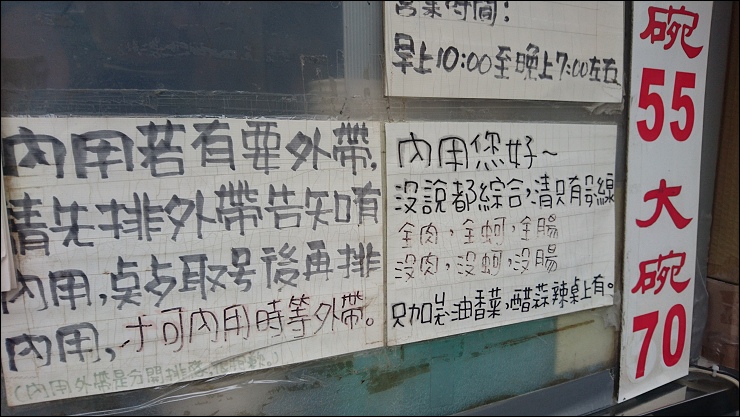 營業時間:
早上10:00至晚上7:00左右
內用若有要外帶,
請先排外帶告知有
內用,桌号取号後再排
內用,才可內用時等外帶。
(內用外帶是分開排
內用您好~
沒說都綜合,清只有麵線
全肉,全蚵,全腸
沒肉,沒蚵,沒腸
油香菜,醋蒜辣桌上有。
碗
55
大
碗
70